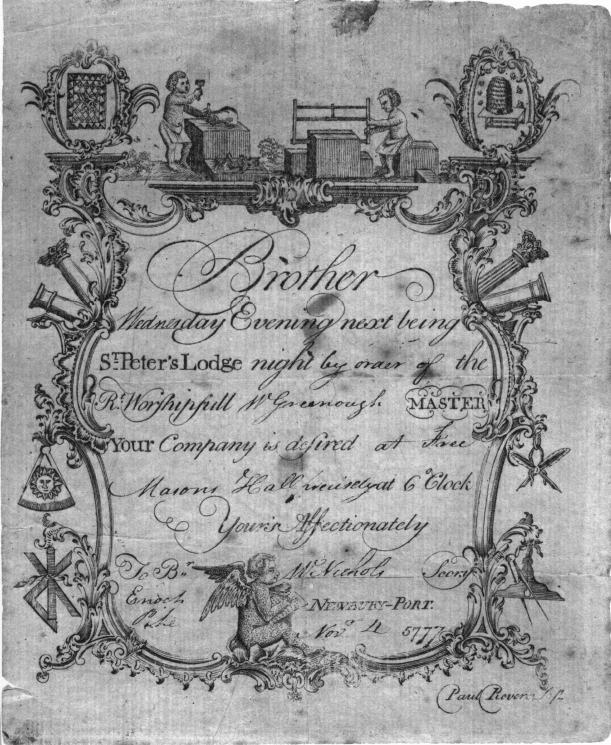 Brother
Wednesday Evening next being
St. Peter's Lodge night by order of the
Rt. Worshipfull Wm Greenough MASTER
Your Company is desired at Free
Masons Hall precisely at 6 o'Clock
Your's Affectionately
To Br. Wm Nichols Secry
Enoch
Pike
NEWBURY-PORT.
Novr. 4 5777
Paul Revere Sc.